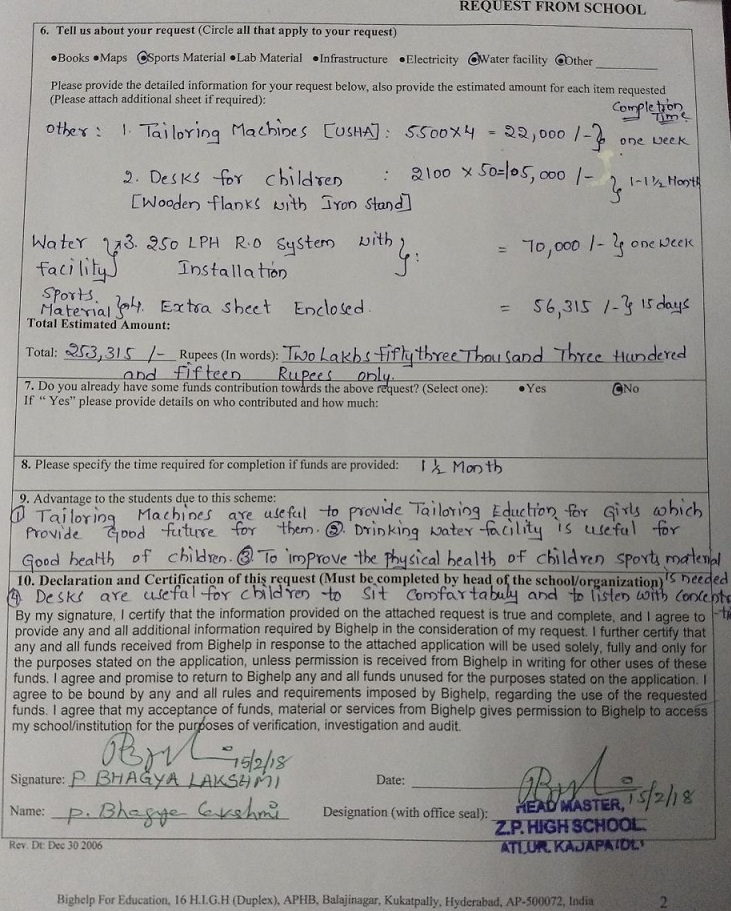 REQUEST FROM SCHOOL
6. Tell us about your request (Circle all that apply to your request)
•Books •Maps •Sports Material •Lab Material •Infrastructure •Electricity •Water facility •Other
Please provide the detailed information for your request below, also provide the estimated amount for each item requested
(Please attach additional sheet if required):
Completion Time
Other: 1. Tailoring Machines [USHA]: 5500x4 = 22,000/-} one week
2. Desks for children : 2100 x 50=105,000/- } 1-1½ Month
[Wooden flanks with Iron Stand]
Water facility } 3. 250 LPH R.O System with Installation }: = 70,000/-} one week
Sports Material } 4. Extra sheet Enclosed. = 56,315/-} 15 days
Total Estimated Amount:
Total: 253,315/- Rupees (In words): Two Lakhs Fifty three Thousand Three Hundered
and fifteen Rupees only.
7. Do you already have some funds contribution towards the above request? (Select one): •Yes •No
If " Yes" please provide details on who contributed and how much:
8. Please specify the time required for completion if funds are provided: 1½ Month
9. Advantage to the students due to this scheme:
① Tailoring Machines are useful to provide Tailoring Eduction for Girls which
Provide Good future for them. ②. Drinking water facility is useful for
Good health of children. ③ To improve the physical health of children sports material
is needed
10. Declaration and Certification of this request (Must be completed by head of the school/organization)
④ Desks are useful for children to sit Comfartabuly and to listen with
By my signature, I certify that the information provided on the attached request is true and complete, and I agree to
provide any and all additional information required by Bighelp in the consideration of my request. I further certify that
any and all funds received from Bighelp in response to the attached application will be used solely, fully and only for
the purposes stated on the application, unless permission is received from Bighelp in writing for other uses of these
funds. I agree and promise to return to Bighelp any and all funds unused for the purposes stated on the application. I
agree to be bound by any and all rules and requirements imposed by Bighelp, regarding the use of the requested
funds. I agree that my acceptance of funds, material or services from Bighelp gives permission to Bighelp to access
my school/institution for the purposes of verification, investigation and audit.
15/2/18
Signature: P. BHAGYA LAKSHMI Date:
15/2/18
Name: P. Bhagya Lakshmi Designation (with office seal): HEAD MASTER,
Z.P. HIGH SCHOOL
Rev. Dt: Dec 30 2006
Bighelp For Education, 16 H.I.G.H (Duplex), APHB, Balajinagar, Kukatpally, Hyderabad, AP-500072, India 2